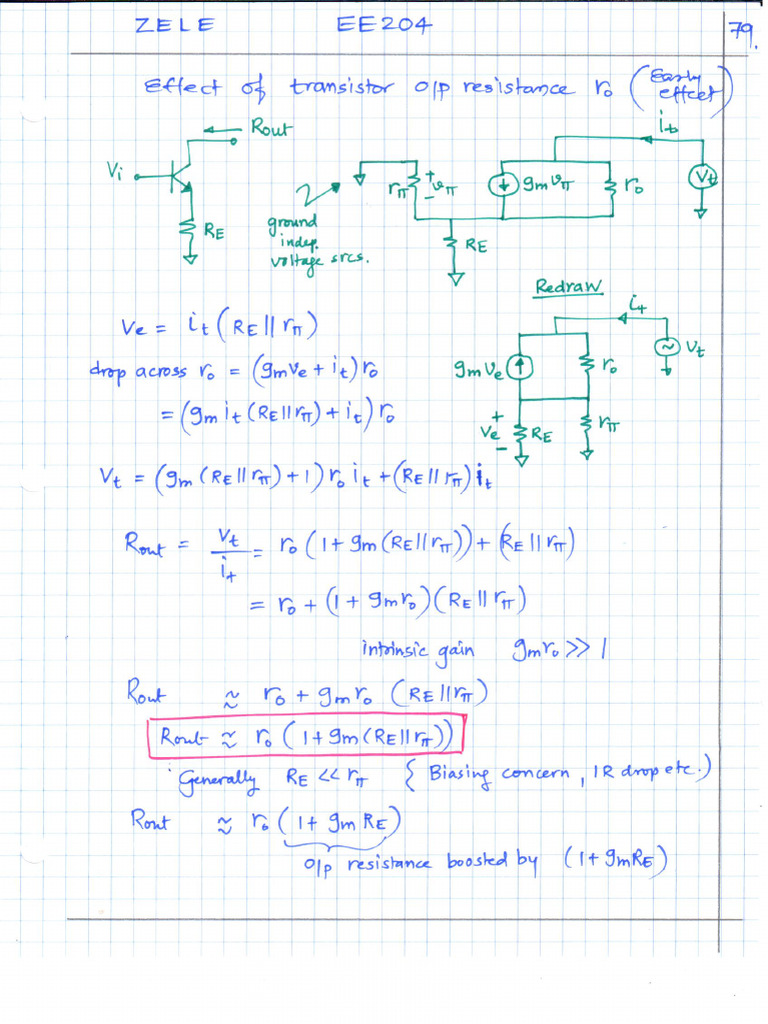 ZELE EE204 79.
Effect of transistor o/p resistance ro (Early effect)
Rout
Vi
RE
ground
indep.
voltage srcs.
rπ
+
vπ
−
gmvπ
ro
it
Vt
RE
Redraw
it
gmve
ro
Vt
+
ve
−
RE
rπ
Ve = it (RE || rπ)
drop across ro = (gmve + it) ro
= (gm it (RE || rπ) + it) ro
Vt = (gm (RE || rπ) + 1) ro it + (RE || rπ) it
Rout = Vt/it = ro (1 + gm (RE || rπ)) + (RE || rπ)
= ro + (1 + gmro) (RE || rπ)
intrinsic gain gmro >> 1
Rout ≈ ro + gmro (RE || rπ)
Rout ≈ ro (1 + gm (RE || rπ))
Generally RE << rπ { Biasing concern, IR drop etc.)
Rout ≈ ro (1 + gm RE)
o/p resistance boosted by (1 + gmRE)